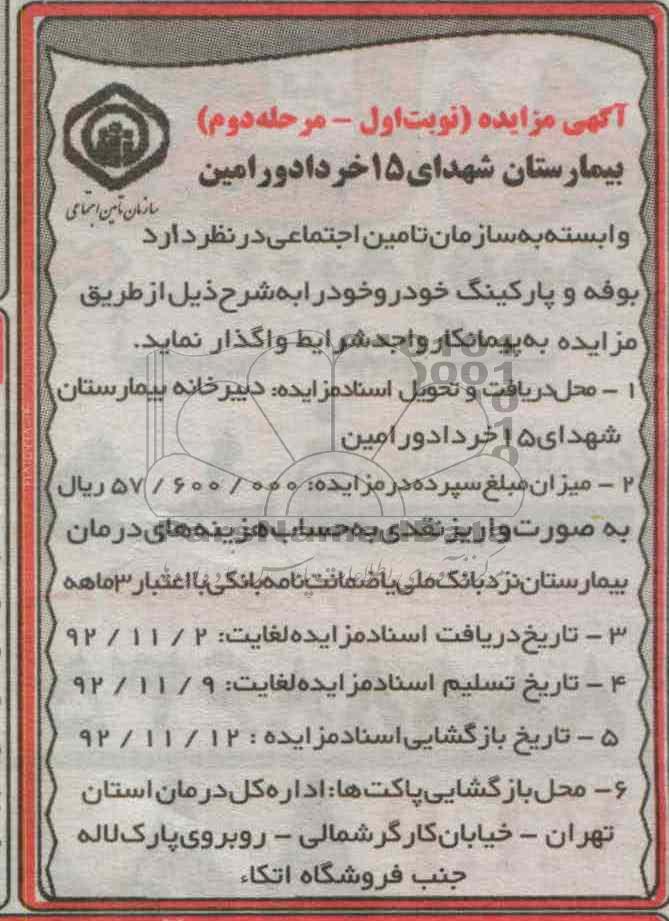 آگهی مزایده (نوبت اول - مرحله دوم)
بیمارستان شهدای ۱۵ خرداد ورامین
سازمان تامین اجتماعی
وابسته به سازمان تامین اجتماعی در نظر دارد
بوفه و پارکینگ خودرو خود را به شرح ذیل از طریق
مزایده به پیمانکار واجد شرایط واگذار نماید.
۱ - محل دریافت و تحویل اسناد مزایده: دبیرخانه بیمارستان
شهدای ۱۵ خرداد ورامین
۲ - میزان مبلغ سپرده در مزایده: ۵۷/۶۰۰/۰۰۰ ریال
به صورت واریز نقدی به حساب هزینه های درمان
بیمارستان نزد بانک ملی یا ضمانت نامه بانکی با اعتبار ۳ ماهه
۳ - تاریخ دریافت اسناد مزایده لغایت: ۹۲/۱۱/۲
۴ - تاریخ تسلیم اسناد مزایده لغایت: ۹۲/۱۱/۹
۵ - تاریخ بازگشایی اسناد مزایده : ۹۲/۱۱/۱۲
۶- محل بازگشایی پاکت ها: اداره کل درمان استان
تهران - خیابان کارگر شمالی - روبروی پارک لاله
جنب فروشگاه اتکاء